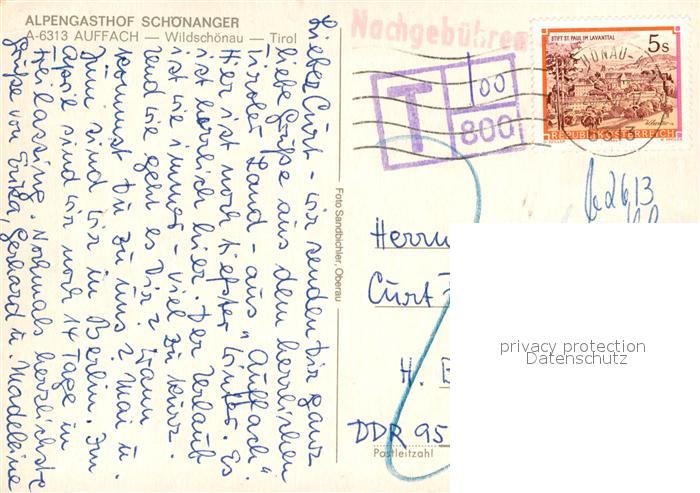 ALPENGASTHOF SCHÖNANGER
A-6313 AUFFACH — Wildschönau — Tirol
Lieber Curt - wir senden Dir ganz
liebe Grüße aus dem herrlichen
Tiroler Land - aus „Auffach".
Hier ist noch tiefster Winter. Es
ist herrlich hier. Der Urlaub
ist wie immer - viel zu kurz.
Und wie geht es Dir? Wann
kommst Du zu uns? Mai u.
Juni sind wir in Berlin. Im
April sind wir noch 14 Tage in
Freilassing. Nochmals herzlichste
Grüße von Erika, Gerhard u. Madeleine
Foto Sandbichler, Oberau
Nachgebühren
T
100
800
STIFT ST. PAUL IM LAVANTTAL
5 S
REPUBLIK ÖSTERREICH
Herrn
Curt
H.
DDR 95
Postleitzahl
privacy protection
Datenschutz